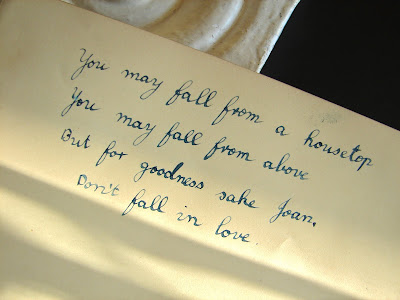 You may fall from a housetop
You may fall from above
But for goodness sake Joan,
Don't fall in love.